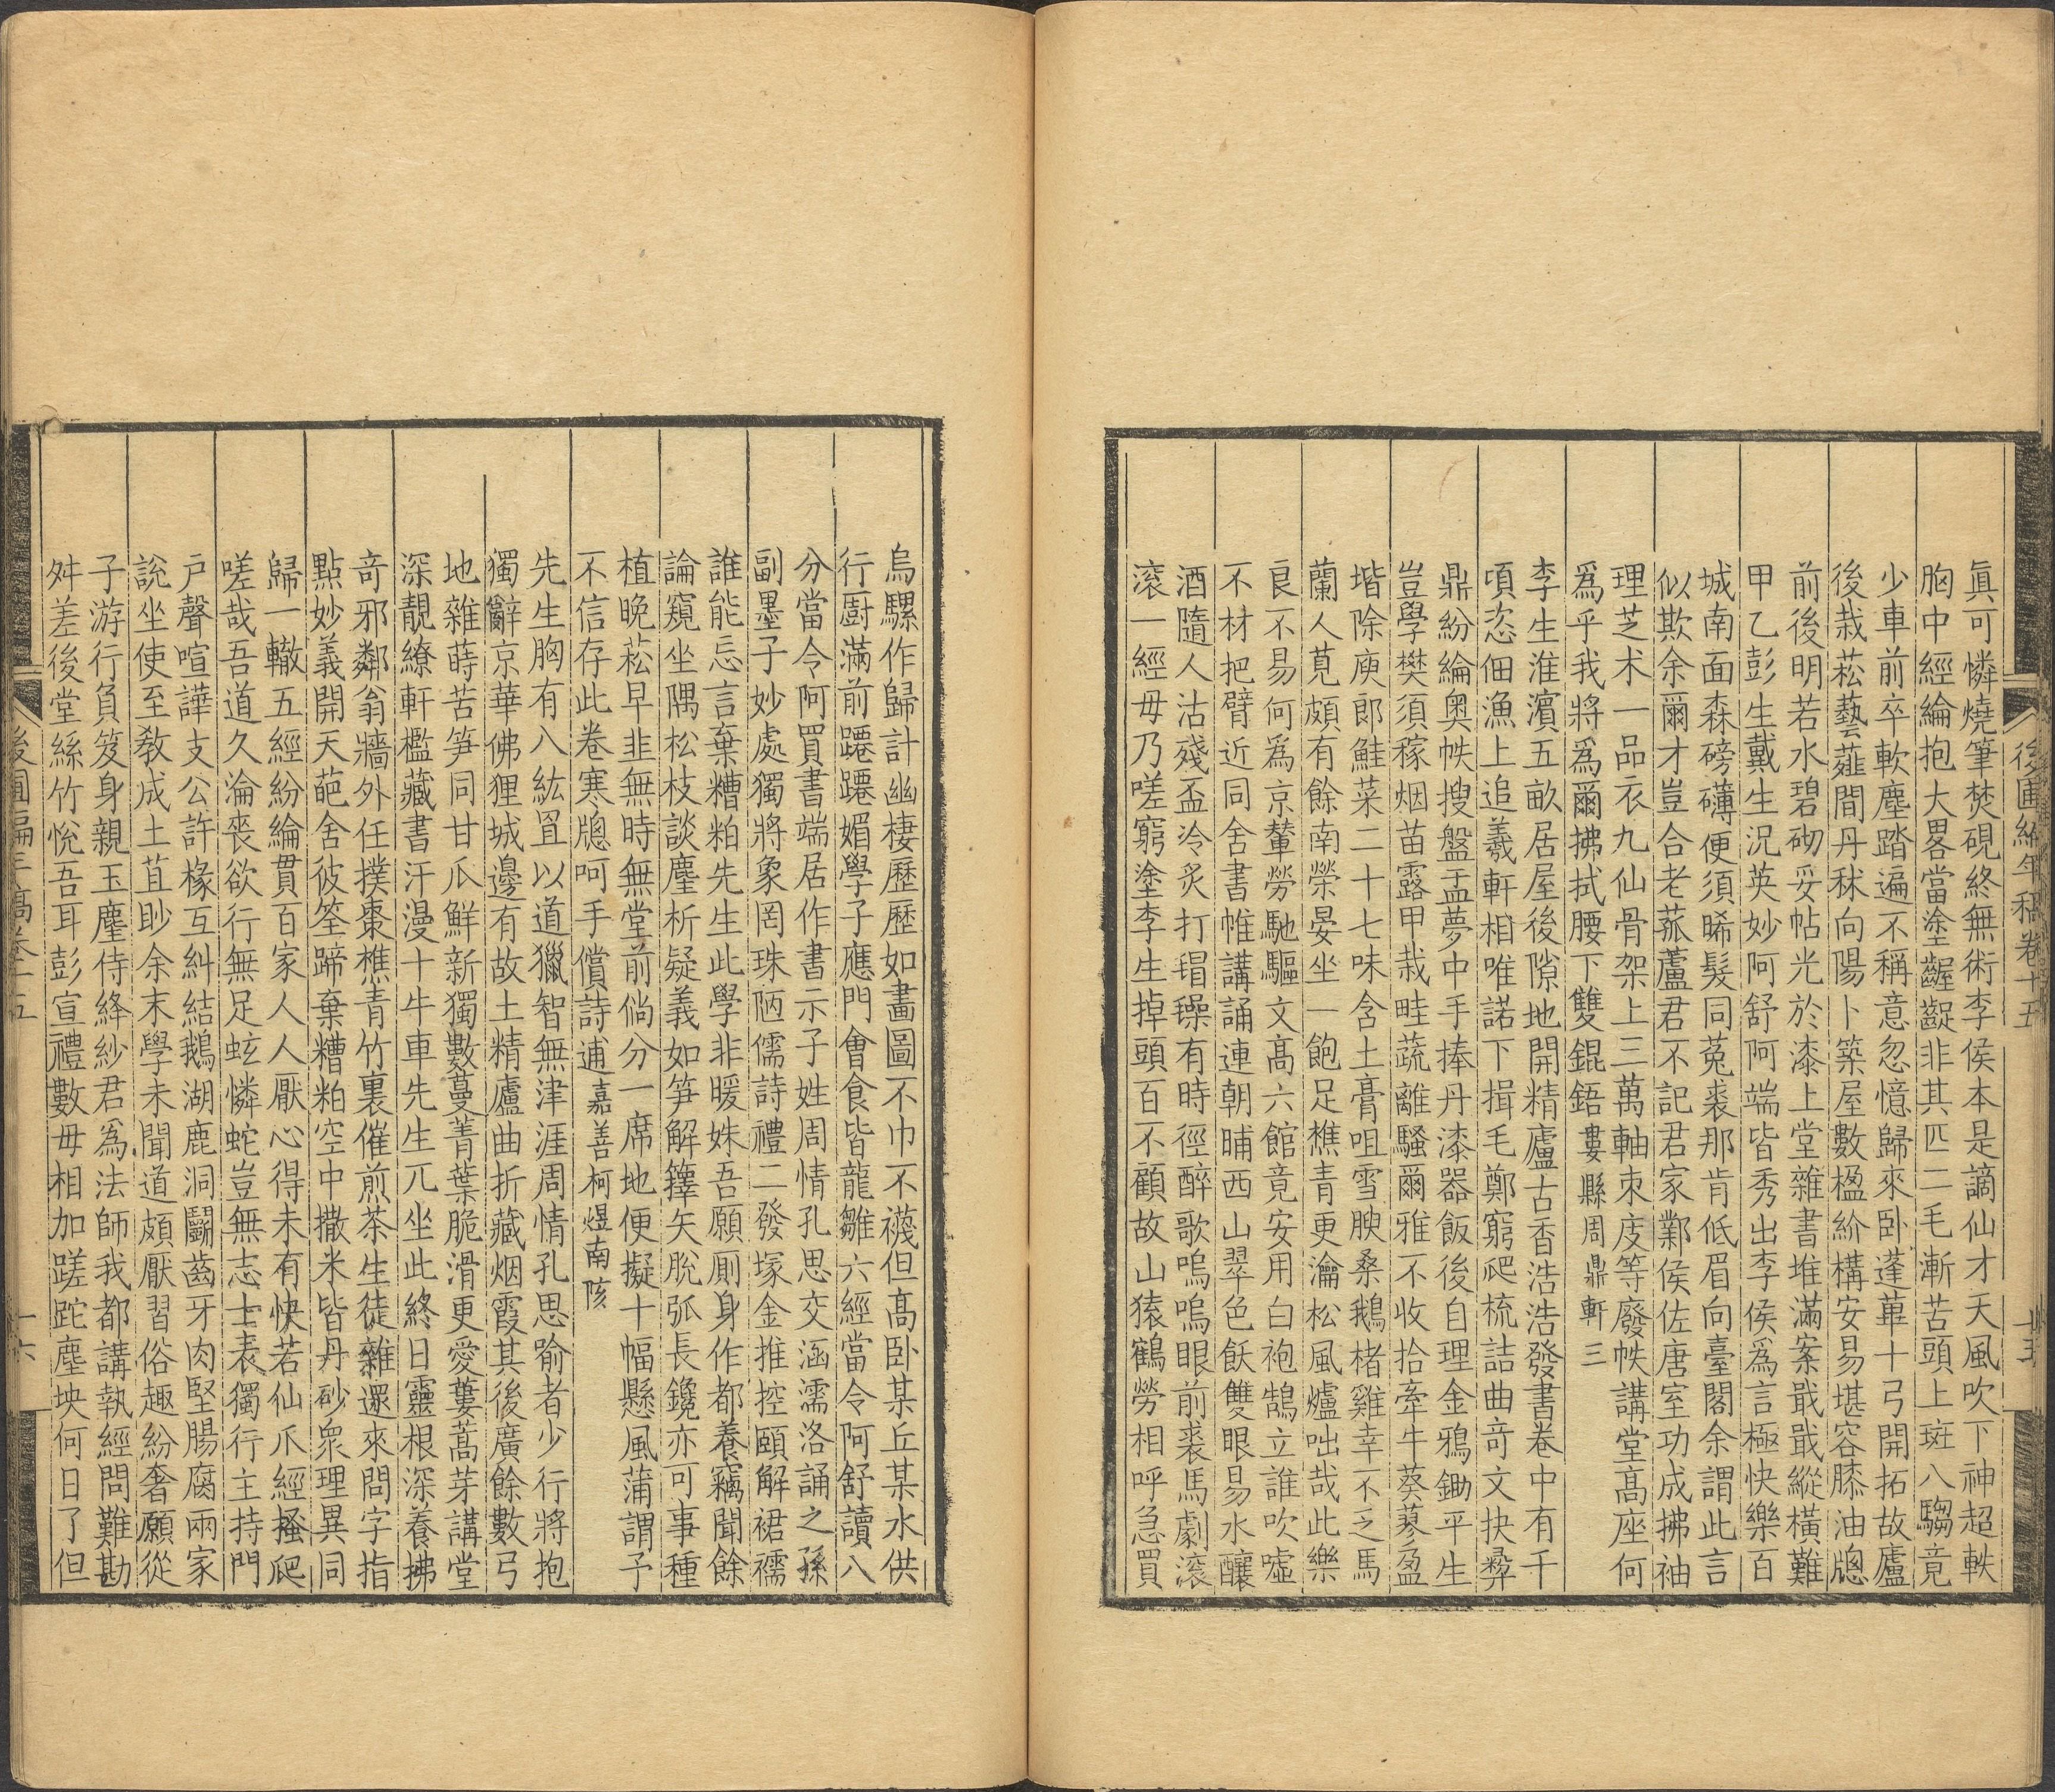 後圃編年稿卷十五
眞可憐燒筆焚硯終無術李侯本是謫仙才天風吹下神超軼
胸中經綸抱大畧當塗齷齪非其匹二毛漸苦頭上斑八騶竟
少車前卒軟塵踏遍不稱意忽憶歸來卧蓬蓽十弓開拓故廬
後栽菘藝薤間丹秫向陽卜築屋數楹紒構安易堪容膝油牕
前後明若水碧砌妥帖光於漆上堂雜書堆滿案戢戢縱橫難
甲乙彭生戴生況英妙阿舒阿端皆秀出李侯爲言極快樂百
城南面森磅礴便須晞髮同菟裘那肯低眉向臺閣余謂此言
似欺余爾才豈合老菰蘆君不記君家鄴侯佐唐室功成拂袖
理芝术一品衣九仙骨架上三萬軸朿庋等廢帙講堂高座何
爲乎我將爲爾拂拭腰下雙錕鋙婁縣周鼎軒三
李生淮濵五畝居屋後隙地開精廬古香浩浩發書卷中有千
頃恣佃漁上追羲軒相唯諾下揖毛鄭窮爬梳詰曲竒文抉彛
鼎紛綸奧帙搜盤盂夢中手捧丹漆器飯後自理金鴉鋤平生
豈學樊須稼烟苗露甲栽畦蔬離騷爾雅不收拾牽牛葵蓼盈
堦除庾郎鮭菜二十七味含土膏咀雪腴桑鵝楮雞幸不乏馬
蘭人莧頗有餘南榮晏坐一飽足樵青更瀹松風爐咄哉此樂
良不易何爲京輦勞馳驅文髙六館竟安用白袍鵠立誰吹噓
不材把臂近同舍書帷講誦連朝晡西山翠色飫雙眼易水釀
酒隨人沽殘盃冷炙打瑁璪有時徑醉歌嗚嗚眼前裘馬劇滚
滚一經毋乃嗟窮塗李生掉頭百不顧故山猿鶴勞相呼急買
烏騾作歸計幽棲歷歷如畫圖不巾不襪但髙卧某丘某水供
行廚滿前蹮蹮媚學子應門會食皆龍雛六經當令阿舒讀八
分當令阿買書端居作書示子姓周情孔思交涵濡洛誦之孫
副墨子妙處獨將象罔珠陋儒詩禮二發塚金推控頤解裙襦
誰能忘言棄糟粕先生此學非暖姝吾願厠身作都養竊聞餘
論窺坐隅松枝談麈析疑義如笋解籜矢脫弧長鑱亦可事種
植晚菘早韭無時無堂前倘分一席地便擬十幅懸風蒲謂予
不信存此卷寒牕呵手償詩逋嘉善柯煜南陔
先生胸有八紘罝以道獵智無津涯周情孔思喻者少行將抱
獨辭京華佛狸城邊有故土精廬曲折藏烟霞其後廣餘數弓
地雜蒔苦笋同甘瓜鮮新獨數蔓菁葉脆滑更愛蔞蒿芽講堂
深靚繚軒檻藏書汗漫十牛車先生兀坐此終日靈根深養拂
竒邪鄰翁牆外任撲棗樵青竹裏催煎茶生徒雜遝來問字指
點妙義開天葩舍彼筌蹄棄糟粕空中撒米皆丹砂衆理異同
歸一轍五經紛綸貫百家人人厭心得未有快若仙爪經搔爬
嗟哉吾道久淪喪欲行無足蚿憐蛇豈無志士表獨行主持門
户聲喧譁支公許椽互糾結鵝湖鹿洞鬬齒牙肉堅腸腐兩家
說坐使至敎成土苴眇余末學未聞道頗厭習俗趣紛奢願從
子游行負笈身親玉麈侍絳紗君爲法師我都講執經問難勘
舛差後堂絲竹悅吾耳彭宣禮數毋相加蹉跎塵坱何日了但